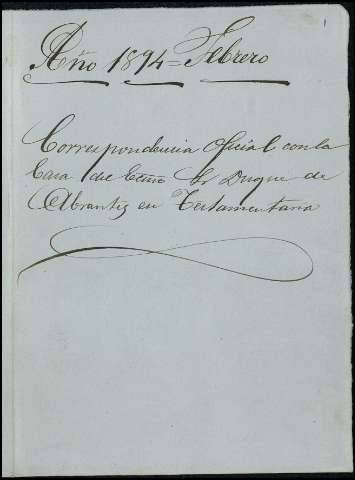 1
Año 1894 = Febrero
Correspondencia Oficial con la
Casa del Excmo Sr Duque de
Abrantes en Testamentaria